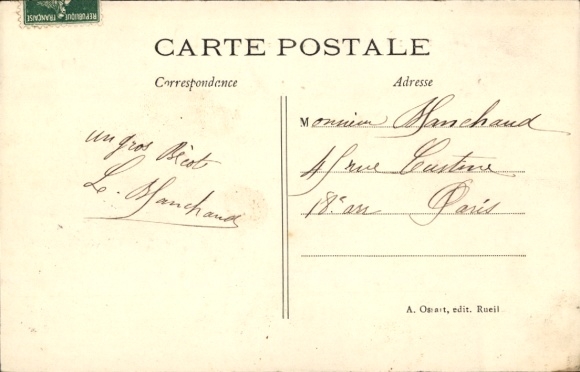 RÉPUBLIQUE FRANÇAISE
CARTE POSTALE
Correspondance
Adresse
un gros Bécot
L. Blanchaud
Monsieur Blanchaud
45 rue Custine
18e arr Paris
A. Ossart, edit. Rueil